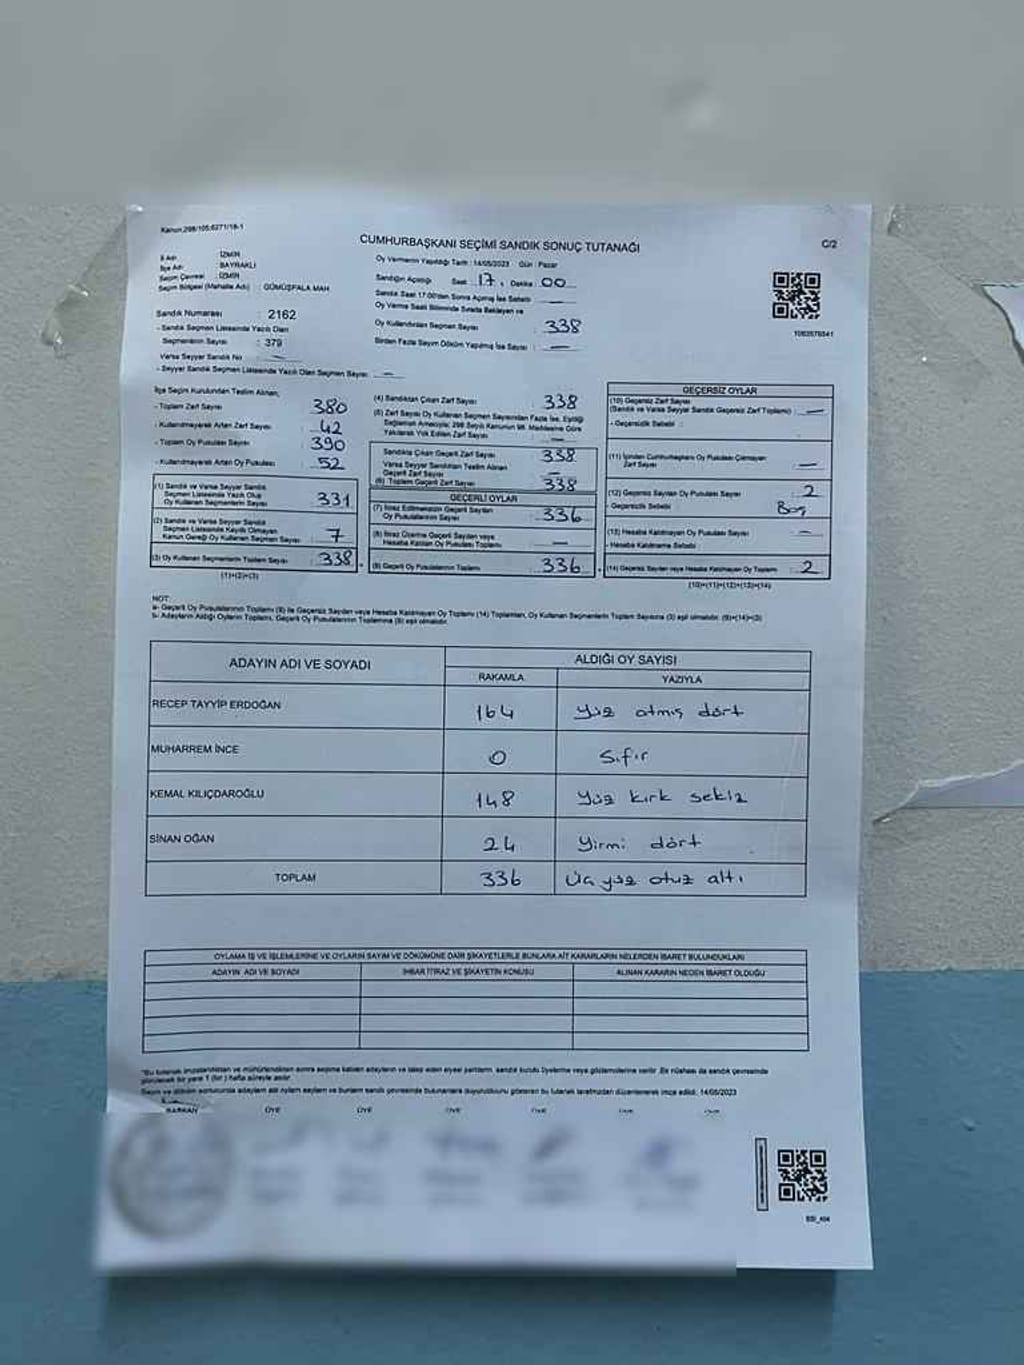 Kanun;298/105;6271/18-1
CUMHURBAŞKANI SEÇİMİ SANDIK SONUÇ TUTANAĞI
C/2
İl Adı : İZMİR
İlçe Adı : BAYRAKLI
Seçim Çevresi : İZMİR
Seçim Bölgesi (Mahalle Adı) : GÜMÜŞPALA MAH.
Oy Vermenin Yapıldığı Tarih : 14/05/2023 Gün : Pazar
Sandığın Açıldığı Saat 17 , Dakika 00
Sandık Saat 17:00'den Sonra Açılmış İse Sebebi —
Oy Verme Saati Bitiminde Sırada Bekleyen ve
Oy Kullandırılan Seçmen Sayısı : 338
Birden Fazla Sayım Döküm Yapılmış İse Sayısı : —
1063576541
Sandık Numarası : 2162
- Sandık Seçmen Listesinde Yazılı Olan
Seçmenlerin Sayısı : 379
Varsa Seyyar Sandık No : —
- Seyyar Sandık Seçmen Listesinde Yazılı Olan Seçmen Sayısı : —
İlçe Seçim Kurulundan Teslim Alınan;
- Toplam Zarf Sayısı : 380
- Kullanılmayarak Artan Zarf Sayısı : 42
- Toplam Oy Pusulası Sayısı : 390
- Kullanılmayarak Artan Oy Pusulası : 52
(1) Sandık ve Varsa Seyyar Sandık
Seçmen Listesinde Yazılı Olup
Oy Kullanan Seçmenlerin Sayısı : 331
(2) Sandık ve Varsa Seyyar Sandık
Seçmen Listesinde Kayıtlı Olmayan
Kanun Gereği Oy Kullanan Seçmen Sayısı : 7
(3) Oy Kullanan Seçmenlerin Toplam Sayısı : 338
(1)+(2)=(3)
(4) Sandıktan Çıkan Zarf Sayısı : 338
(5) Zarf Sayısı Oy Kullanan Seçmen Sayısından Fazla İse, Eşitliği
Sağlamak Amacıyla; 298 Sayılı Kanunun 98. Maddesine Göre
Yakılarak Yok Edilen Zarf Sayısı : —
Sandıkta Çıkan Geçerli Zarf Sayısı : 338
Varsa Seyyar Sandıktan Teslim Alınan
Geçerli Zarf Sayısı : —
(6) Toplam Geçerli Zarf Sayısı : 338
GEÇERLİ OYLAR
(7) İtiraz Edilmeksizin Geçerli Sayılan
Oy Pusulalarının Sayısı : 336
(8) İtiraz Üzerine Geçerli Sayılan veya
Hesaba Katılan Oy Pusulası Toplamı : —
(9) Geçerli Oy Pusulalarının Toplamı : 336
GEÇERSİZ OYLAR
(10) Geçersiz Zarf Sayısı
(Sandık ve Varsa Seyyar Sandık Geçersiz Zarf Toplamı) : —
- Geçersizlik Sebebi :
(11) İçinden Cumhurbaşkanı Oy Pusulası Çıkmayan
Zarf Sayısı : —
(12) Geçersiz Sayılan Oy Pusulası Sayısı : 2
- Geçersizlik Sebebi : Boş
(13) Hesaba Katılmayan Oy Pusulası Sayısı : —
- Hesaba Katılmama Sebebi :
(14) Geçersiz Sayılan veya Hesaba Katılmayan Oy Toplamı : 2
(10)+(11)+(12)+(13)=(14)
NOT:
a- Geçerli Oy Pusulalarının Toplamı (9) ile Geçersiz Sayılan veya Hesaba Katılmayan Oy Toplamı (14) Toplamları, Oy Kullanan Seçmenlerin Toplam Sayısına (3) eşit olmalıdır. (9)+(14)=(3)
b- Adayların Aldığı Oyların Toplamı, Geçerli Oy Pusulalarının Toplamına (9) eşit olmalıdır.
ADAYIN ADI VE SOYADI
ALDIĞI OY SAYISI
RAKAMLA YAZIYLA
RECEP TAYYİP ERDOĞAN 164 Yüz atmış dört
MUHARREM İNCE 0 Sıfır
KEMAL KILIÇDAROĞLU 148 Yüz kırk sekiz
SİNAN OĞAN 24 Yirmi dört
TOPLAM 336 Üç yüz otuz altı
OYLAMA İŞ VE İŞLEMLERİNE VE OYLARIN SAYIM VE DÖKÜMÜNE DAİR ŞİKAYETLERLE BUNLARA AİT KARARLARIN NELERDEN İBARET BULUNDUKLARI
ADAYIN ADI VE SOYADI İHBAR İTİRAZ VE ŞİKAYETİN KONUSU ALINAN KARARIN NEDEN İBARET OLDUĞU
BAŞKAN ÜYE ÜYE ÜYE ÜYE ÜYE ÜYE